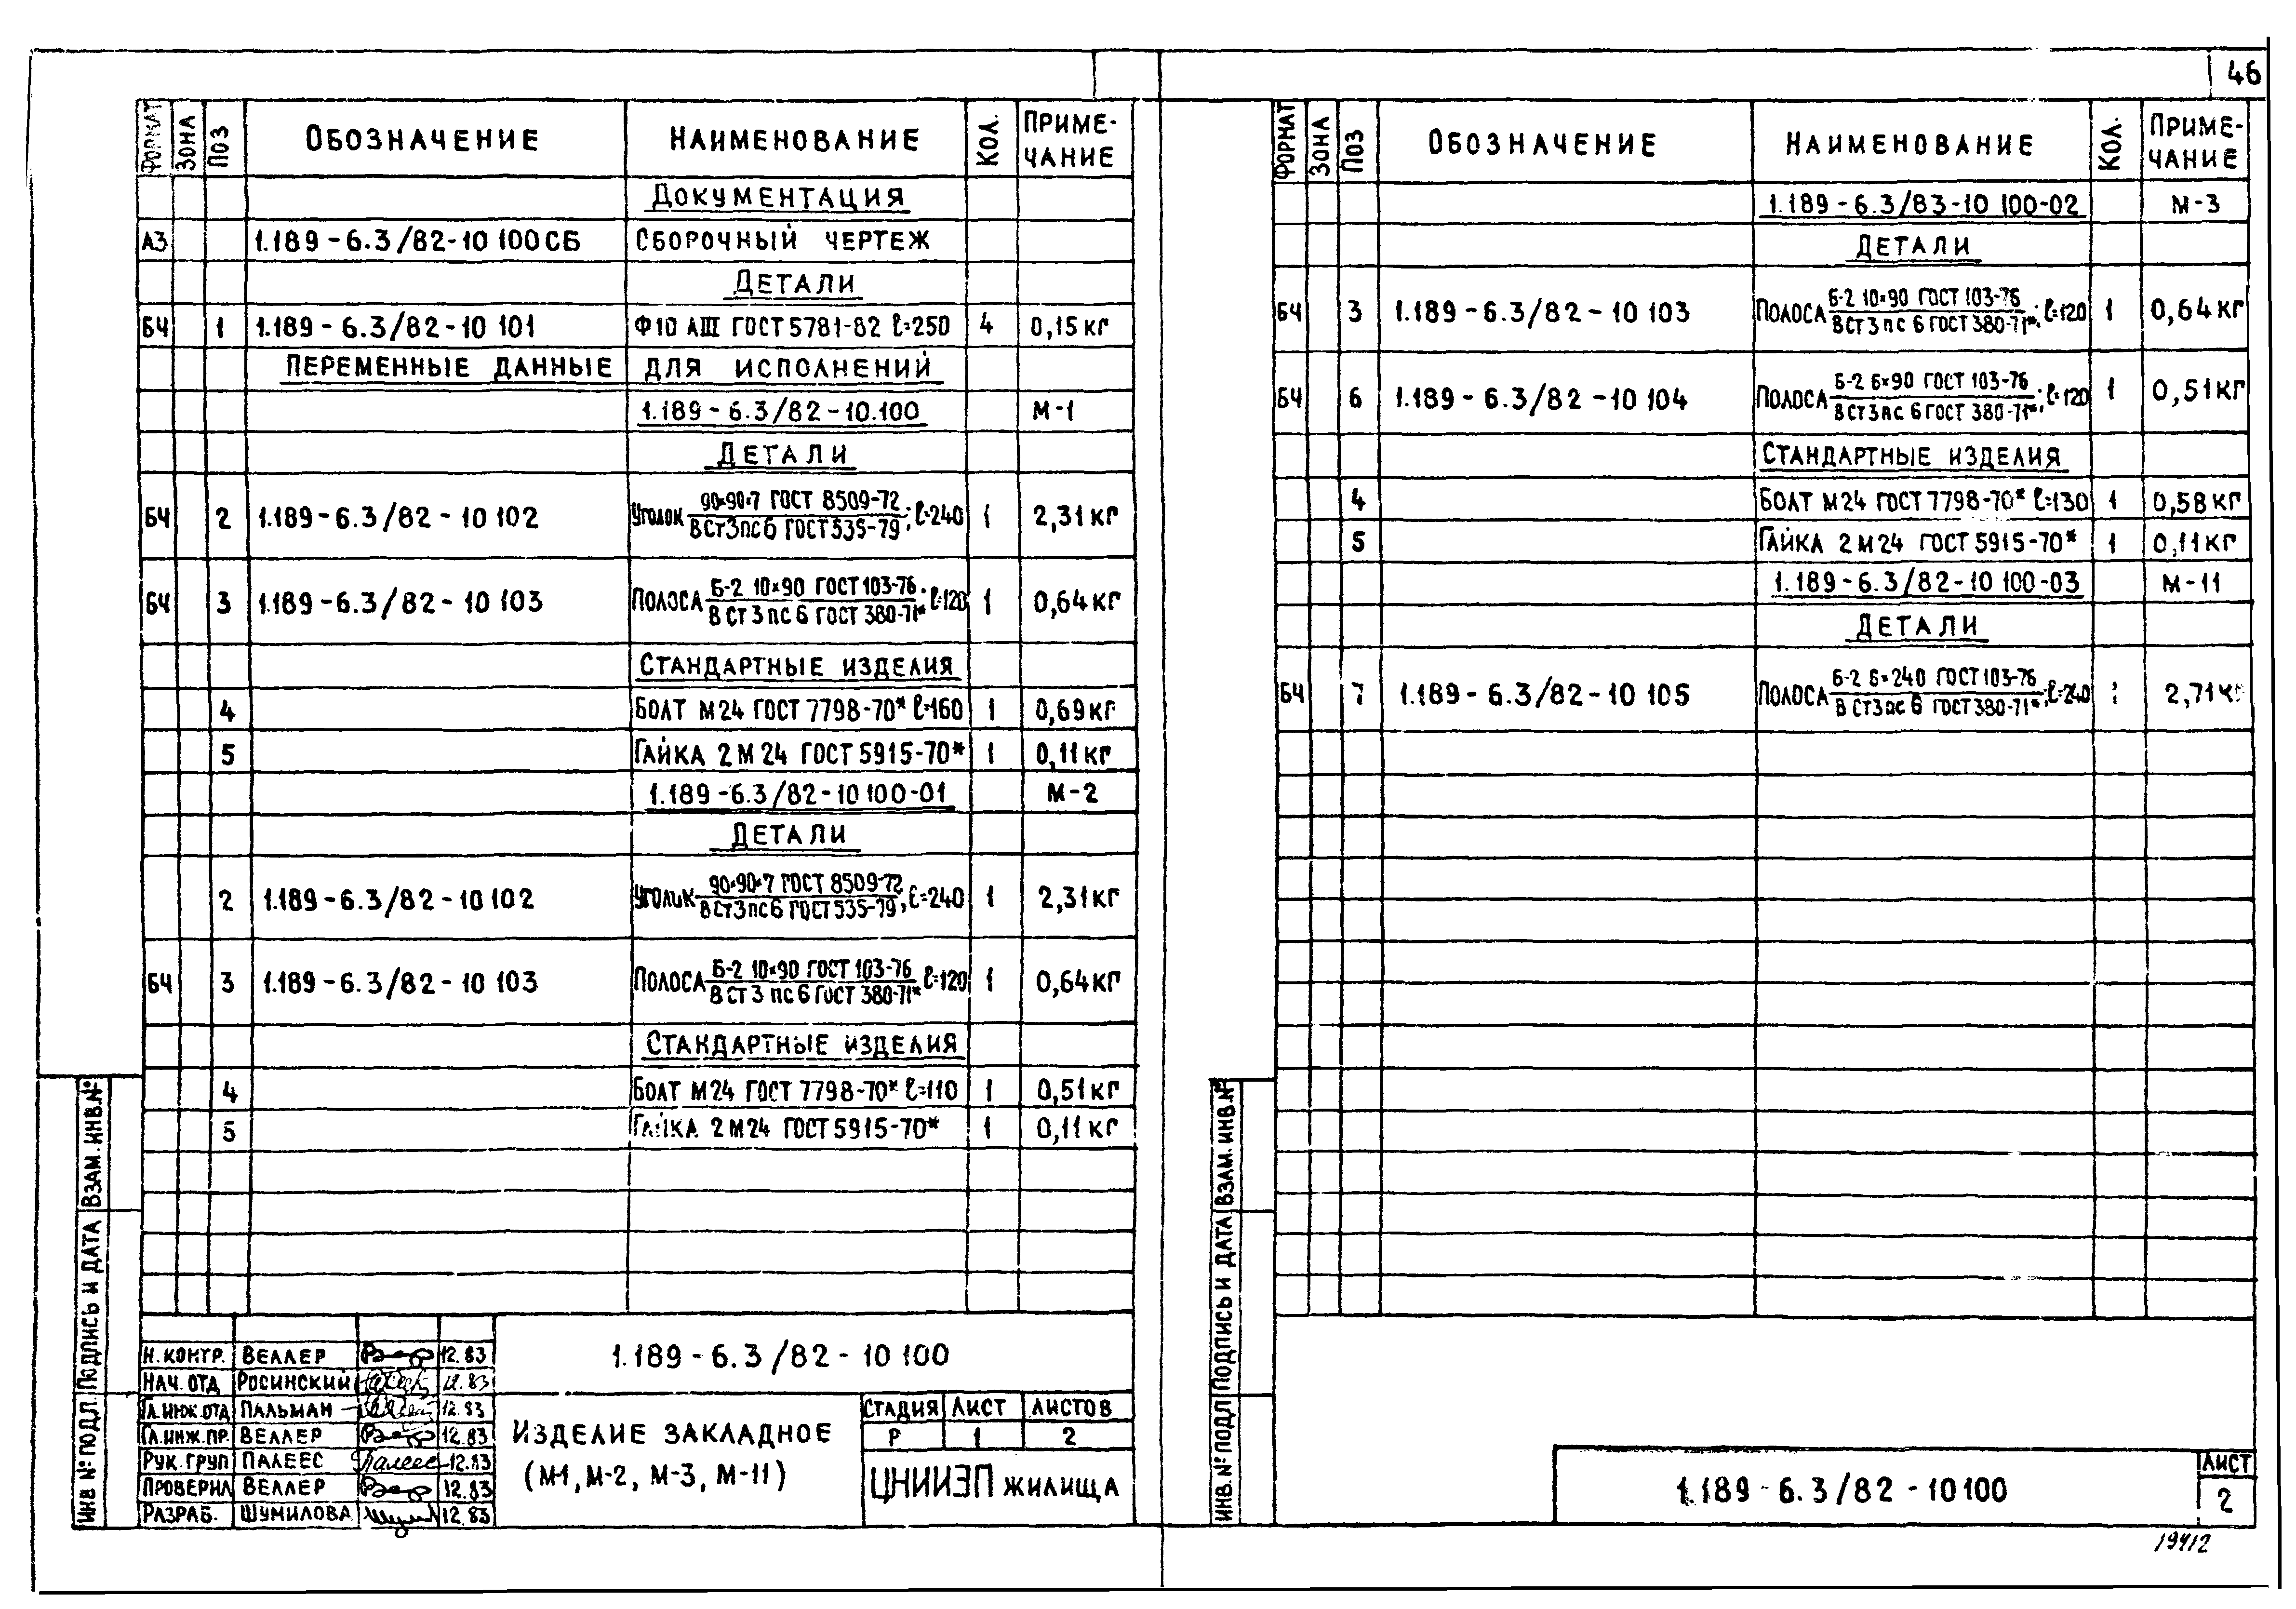 46
ФОРМАТ ЗОНА ПОЗ ОБОЗНАЧЕНИЕ НАИМЕНОВАНИЕ КОЛ. ПРИМЕ-ЧАНИЕ
ДОКУМЕНТАЦИЯ
А3 1.189-6.3/82-10 100СБ СБОРОЧНЫЙ ЧЕРТЕЖ
ДЕТАЛИ
БЧ 1 1.189-6.3/82-10 101 Ф10 АIII ГОСТ 5781-82 ℓ=250 4 0,15 кг
ПЕРЕМЕННЫЕ ДАННЫЕ ДЛЯ ИСПОЛНЕНИЙ
1.189-6.3/82-10.100 М-1
ДЕТАЛИ
БЧ 2 1.189-6.3/82-10 102 Уголок 90×90×7 ГОСТ 8509-72 / ВСт3пс6 ГОСТ 535-79; ℓ=240 1 2,31 кг
БЧ 3 1.189-6.3/82-10 103 Полоса Б-2 10×90 ГОСТ 103-76 / ВСт3пс6 ГОСТ 380-71*; ℓ=120 1 0,64 кг
СТАНДАРТНЫЕ ИЗДЕЛИЯ
4 БОЛТ М24 ГОСТ 7798-70* ℓ=160 1 0,69 кг
5 ГАЙКА 2М24 ГОСТ 5915-70* 1 0,11 кг
1.189-6.3/82-10 100-01 М-2
ДЕТАЛИ
2 1.189-6.3/82-10 102 Уголок 90×90×7 ГОСТ 8509-72 / ВСт3пс6 ГОСТ 535-79; ℓ=240 1 2,31 кг
БЧ 3 1.189-6.3/82-10 103 Полоса Б-2 10×90 ГОСТ 103-76 / ВСт3пс6 ГОСТ 380-71*; ℓ=120 1 0,64 кг
СТАНДАРТНЫЕ ИЗДЕЛИЯ
4 БОЛТ М24 ГОСТ 7798-70* ℓ=110 1 0,51 кг
5 ГАЙКА 2М24 ГОСТ 5915-70* 1 0,11 кг
ИНВ № ПОДЛ. ПОДПИСЬ И ДАТА ВЗАМ. ИНВ.№
Н. КОНТР. ВЕЛЛЕР 12.83
НАЧ. ОТД РОСИНСКИЙ 12.83
ГЛ.ИНЖ.ОТД ПАЛЬМАН 12.83
ГЛ.ИНЖ.ПР. ВЕЛЛЕР 12.83
РУК. ГРУП ПАЛЕЕС Палеес 12.83
ПРОВЕРИЛ ВЕЛЛЕР 12.83
РАЗРАБ. ШУМИЛОВА 12.83
1.189-6.3/82-10 100
ИЗДЕЛИЕ ЗАКЛАДНОЕ
(М-1, М-2, М-3, М-11)
СТАДИЯ ЛИСТ ЛИСТОВ
Р 1 2
ЦНИИЭП ЖИЛИЩА
ФОРМАТ ЗОНА ПОЗ ОБОЗНАЧЕНИЕ НАИМЕНОВАНИЕ КОЛ. ПРИМЕ-ЧАНИЕ
1.189-6.3/83-10 100-02 М-3
ДЕТАЛИ
БЧ 3 1.189-6.3/82-10 103 Полоса Б-2 10×90 ГОСТ 103-76 / ВСт3пс6 ГОСТ 380-71*; ℓ=120 1 0,64 кг
БЧ 6 1.189-6.3/82-10 104 Полоса Б-2 6×90 ГОСТ 103-76 / ВСт3пс6 ГОСТ 380-71*; ℓ=120 1 0,51 кг
СТАНДАРТНЫЕ ИЗДЕЛИЯ
4 БОЛТ М24 ГОСТ 7798-70* ℓ=130 1 0,58 кг
5 ГАЙКА 2М24 ГОСТ 5915-70* 1 0,11 кг
1.189-6.3/82-10 100-03 М-11
ДЕТАЛИ
БЧ 7 1.189-6.3/82-10 105 Полоса Б-2 6×240 ГОСТ 103-76 / ВСт3пс6 ГОСТ 380-71*; ℓ=240 1 2,71 кг
ИНВ.№ ПОДЛ ПОДПИСЬ И ДАТА ВЗАМ. ИНВ.№
1.189-6.3/82-10100
ЛИСТ
2
19412